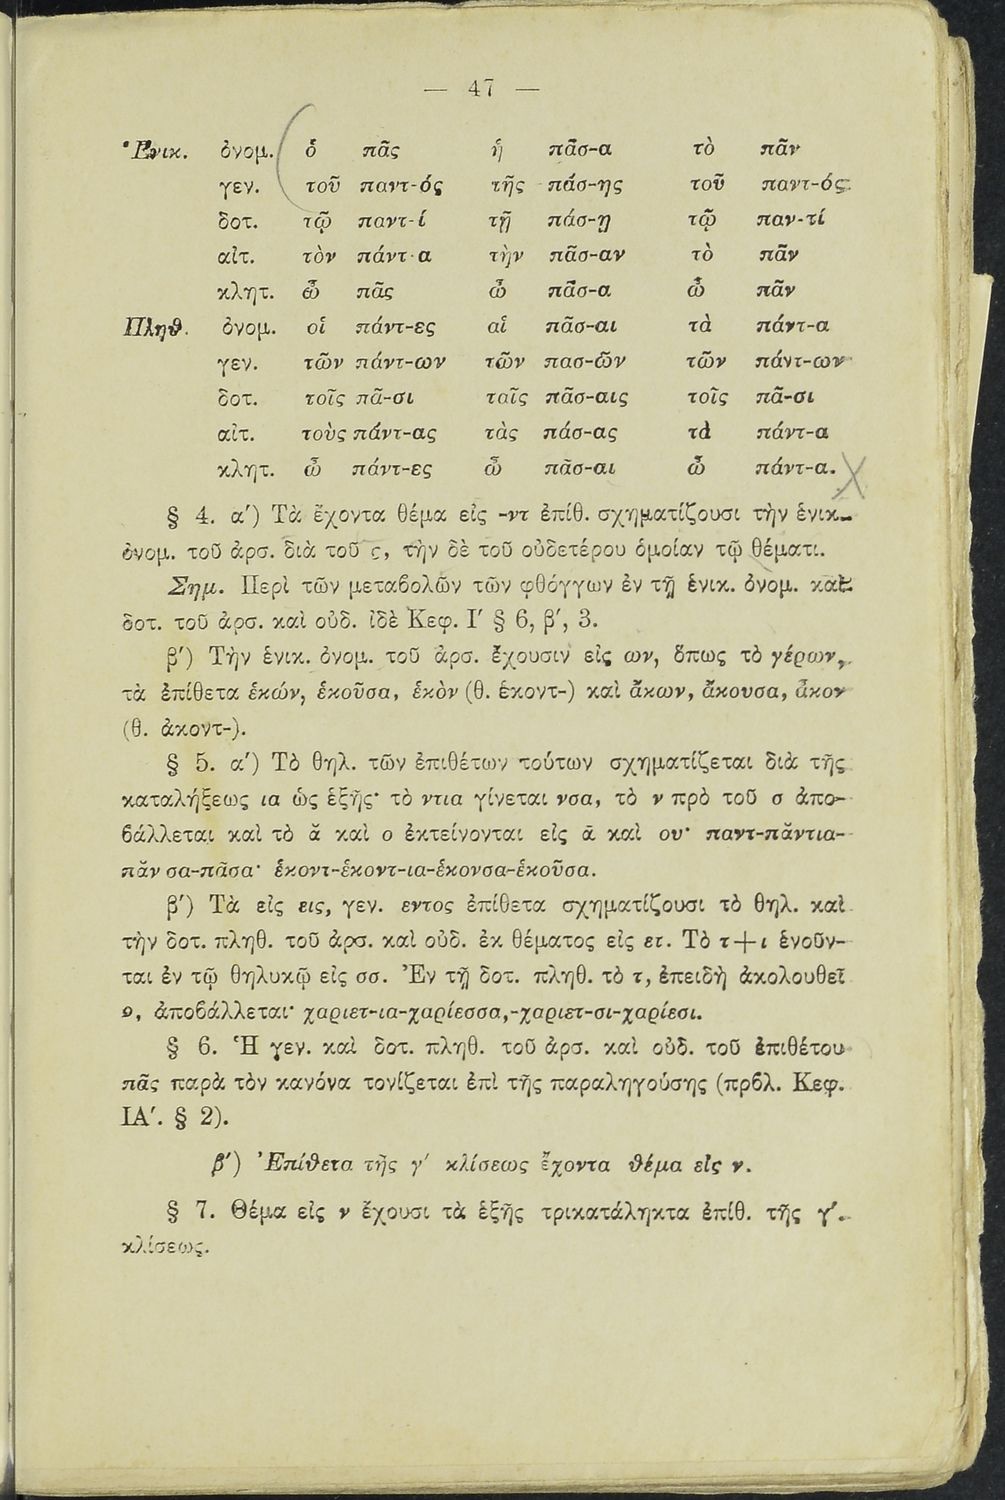 — 47 —
Ἑνικ. ὀνομ. ὁ πᾶς ἡ πᾶσ-α τὸ πᾶν
γεν. τοῦ παντ-ός τῆς πάσ-ης τοῦ παντ-ός
δοτ. τῷ παντ-ί τῇ πάσ-ῃ τῷ παν-τί
αἰτ. τὸν πάντ-α τὴν πᾶσ-αν τὸ πᾶν
κλητ. ὦ πᾶς ὦ πᾶσ-α ὦ πᾶν
Πληθ. ὀνομ. οἱ πάντ-ες αἱ πᾶσ-αι τὰ πάντ-α
γεν. τῶν πάντ-ων τῶν πασ-ῶν τῶν πάντ-ων
δοτ. τοῖς πᾶ-σι ταῖς πᾶσ-αις τοῖς πᾶ-σι
αἰτ. τοὺς πάντ-ας τὰς πάσ-ας τὰ πάντ-α
κλητ. ὦ πάντ-ες ὦ πᾶσ-αι ὦ πάντ-α.
§ 4. α') Τὰ ἔχοντα θέμα εἰς -ντ ἐπίθ. σχηματίζουσι τὴν ἑνικ.
ὀνομ. τοῦ ἀρσ. διὰ τοῦ ς, τὴν δὲ τοῦ οὐδετέρου ὁμοίαν τῷ θέματι.
Σημ. Περὶ τῶν μεταβολῶν τῶν φθόγγων ἐν τῇ ἑνικ. ὀνομ. καὶ
δοτ. τοῦ ἀρσ. καὶ οὐδ. ἰδὲ Κεφ. Ι' § 6, β', 3.
β') Τὴν ἑνικ. ὀνομ. τοῦ ἀρσ. ἔχουσιν εἰς ων, ὅπως τὸ γέρων,
τὰ ἐπίθετα ἑκών, ἑκοῦσα, ἑκὸν (θ. ἑκοντ-) καὶ ἄκων, ἄκουσα, ἆκον
(θ. ἀκοντ-).
§ 5. α') Τὸ θηλ. τῶν ἐπιθέτων τούτων σχηματίζεται διὰ τῆς
καταλήξεως ια ὡς ἑξῆς· τὸ ντια γίνεται νσα, τὸ ν πρὸ τοῦ σ ἀπο-
βάλλεται καὶ τὸ ᾰ καὶ ο ἐκτείνονται εἰς ᾱ καὶ ου· παντ-πᾰντια-
πᾰν σα-πᾶσα· ἑκοντ-ἑκοντ-ια-ἑκονσα-ἑκοῦσα.
β') Τὰ εἰς εις, γεν. εντος ἐπίθετα σχηματίζουσι τὸ θηλ. καὶ
τὴν δοτ. πληθ. τοῦ ἀρσ. καὶ οὐδ. ἐκ θέματος εἰς ετ. Τὸ τ+ι ἑνοῦν-
ται ἐν τῷ θηλυκῷ εἰς σσ. Ἐν τῇ δοτ. πληθ. τὸ τ, ἐπειδὴ ἀκολουθεῖ
σ, ἀποβάλλεται· χαριετ-ια-χαρίεσσα,-χαριετ-σι-χαρίεσι.
§ 6. Ἡ γεν. καὶ δοτ. πληθ. τοῦ ἀρσ. καὶ οὐδ. τοῦ ἐπιθέτου
πᾶς παρὰ τὸν κανόνα τονίζεται ἐπὶ τῆς παραληγούσης (πρβλ. Κεφ.
ΙΑ'. § 2).
β') Ἐπίθετα τῆς γ' κλίσεως ἔχοντα θέμα εἰς ν.
§ 7. Θέμα εἰς ν ἔχουσι τὰ ἑξῆς τρικατάληκτα ἐπίθ. τῆς γ'.
κλίσεως.